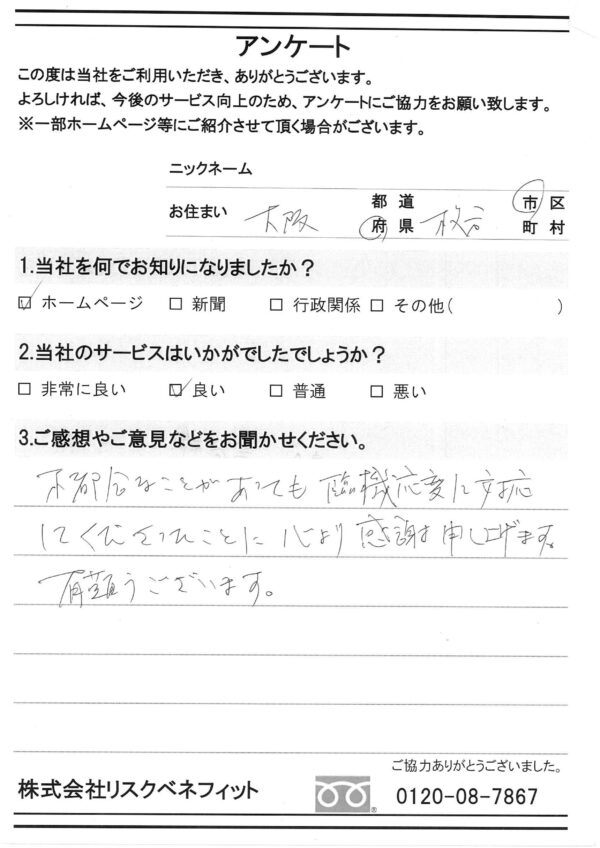 アンケート
この度は当社をご利用いただき、ありがとうございます。
よろしければ、今後のサービス向上のため、アンケートにご協力をお願い致します。
※一部ホームページ等にご紹介させて頂く場合がございます。
ニックネーム
お住まい 大阪 都 道 府 県 枚方 市 区 町 村
1.当社を何でお知りになりましたか？
☑ ホームページ □ 新聞 □ 行政関係 □ その他( )
2.当社のサービスはいかがでしたでしょうか？
□ 非常に良い ☑ 良い □ 普通 □ 悪い
3.ご感想やご意見などをお聞かせください。
不都合なことがあっても臨機応変に対応
してくださったことに心より感謝申し上げます。
有難うございます。
ご協力ありがとうございました。
株式会社リスクベネフィット ® 0120-08-7867